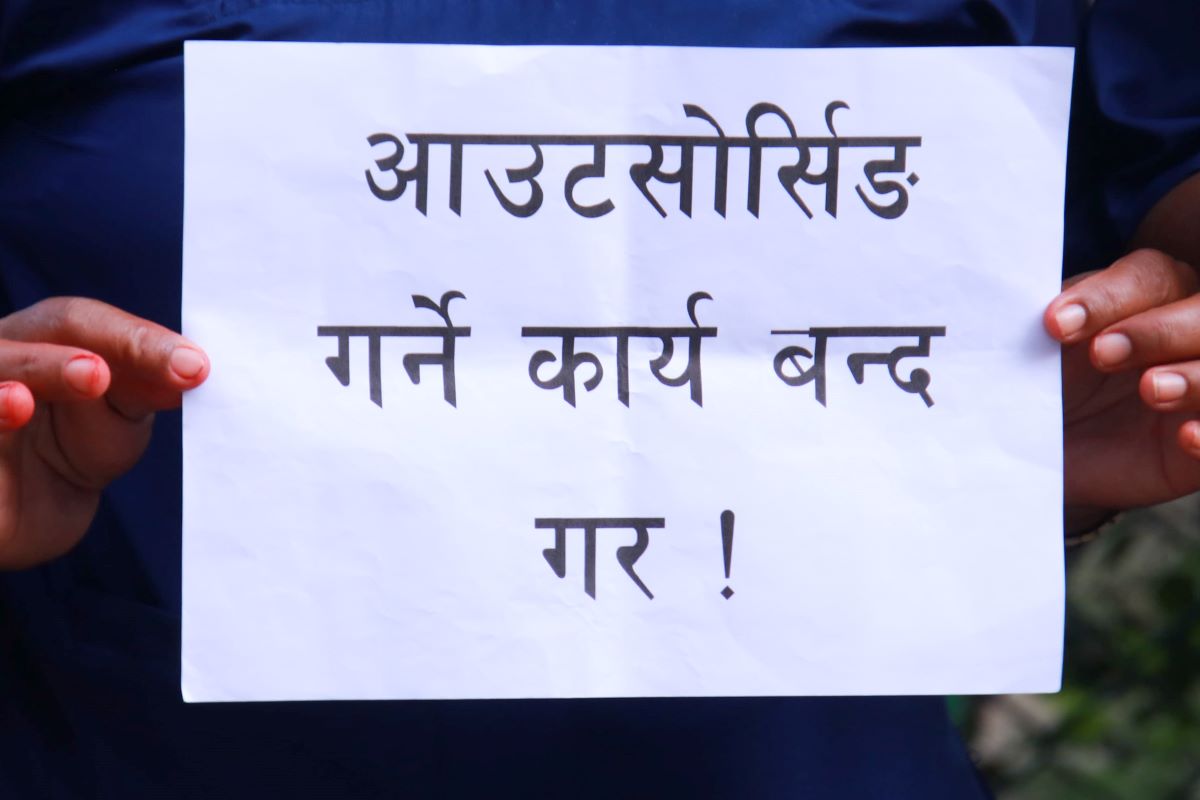 आउटसोर्सिङ
गर्ने कार्य बन्द
गर !